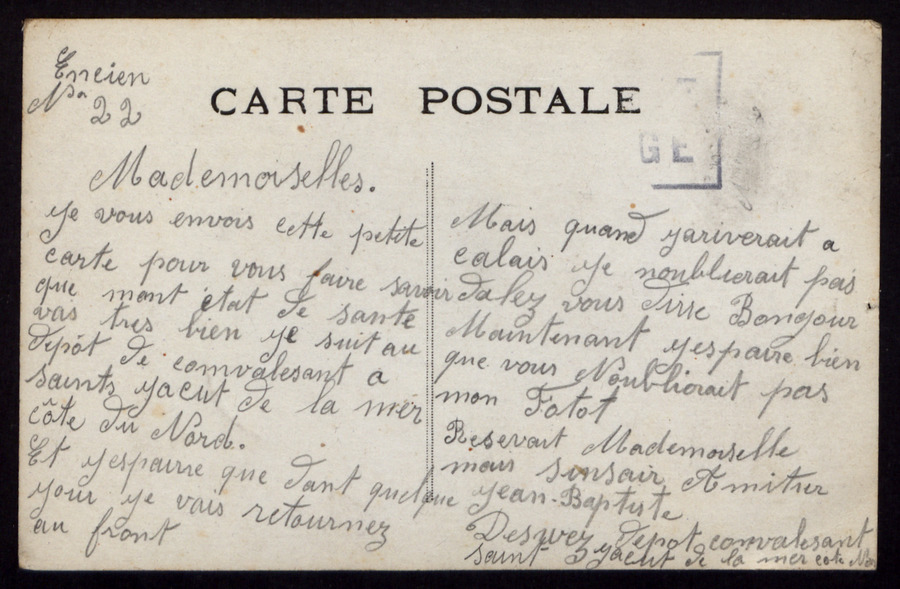 Encien
No 22
CARTE POSTALE
GE
Mademoiselles.
je vous envois cette petite
carte pour vous faire savoir
que mont état de santé
vas tres bien je suit au
depôt de comvalesant a
saints jacut de la mer
côte du Nord.
Et jespaire que dant quelque
jour je vais retournez
au front
Mais quand jariverait a
calais je noublierait pas
dalez vous disse Bongour
Maintenant jespaire bien
que vous Noubliorait pas
mon Fotot
Resevait Mademoiselle
mais sinsair Amitier
jean-Baptiste
depot comvalesant
saint jacut de la mer cote No